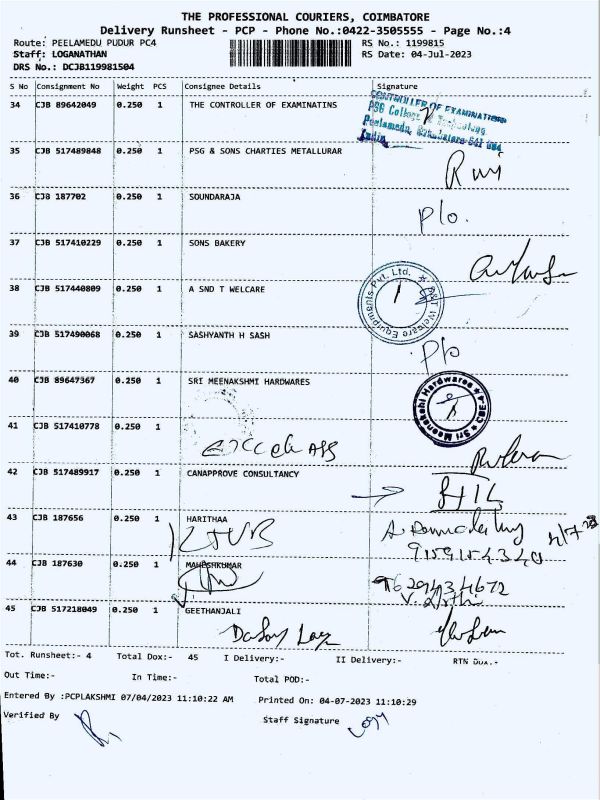 THE PROFESSIONAL COURIERS, COIMBATORE
Delivery Runsheet - PCP - Phone No.:0422-3505555 - Page No.:4
Route: PEELAMEDU PUDUR PC4 RS No.: 1199815
Staff: LOGANATHAN RS Date: 04-Jul-2023
DRS No.: DCJB119981504
S No Consignment No Weight PCS Consignee Details Signature
34 CJB 89642049 0.250 1 THE CONTROLLER OF EXAMINATINS
CONTROLLER OF EXAMINATIONS
PSG College Technology
Peelamedu, Coimbatore 641 004
India
35 CJB 517489848 0.250 1 PSG & SONS CHARTIES METALLURAR
36 CJB 187702 0.250 1 SOUNDARAJA
P/o.
37 CJB 517410229 0.250 1 SONS BAKERY
38 CJB 517440809 0.250 1 A SND T WELCARE
A&T Welcare Equipments Pvt. Ltd.
39 CJB 517490068 0.250 1 SASHYANTH H SASH
40 CJB 89647367 0.250 1 SRI MEENAKSHMI HARDWARES
Sri Meenakshi Hardwares CBE-4
41 CJB 517410778 0.250 1
42 CJB 517489917 0.250 1 CANAPPROVE CONSULTANCY
43 CJB 187656 0.250 1 HARITHAA
9159154340
44 CJB 187630 0.250 1 MAHESHKUMAR
45 CJB 517218049 0.250 1 GEETHANJALI
Tot. Runsheet:- 4 Total Dox:- 45 I Delivery:- II Delivery:- RTN Dox.-
Out Time:- In Time:- Total POD:-
Entered By :PCPLAKSHMI 07/04/2023 11:10:22 AM Printed On: 04-07-2023 11:10:29
Verified By Staff Signature